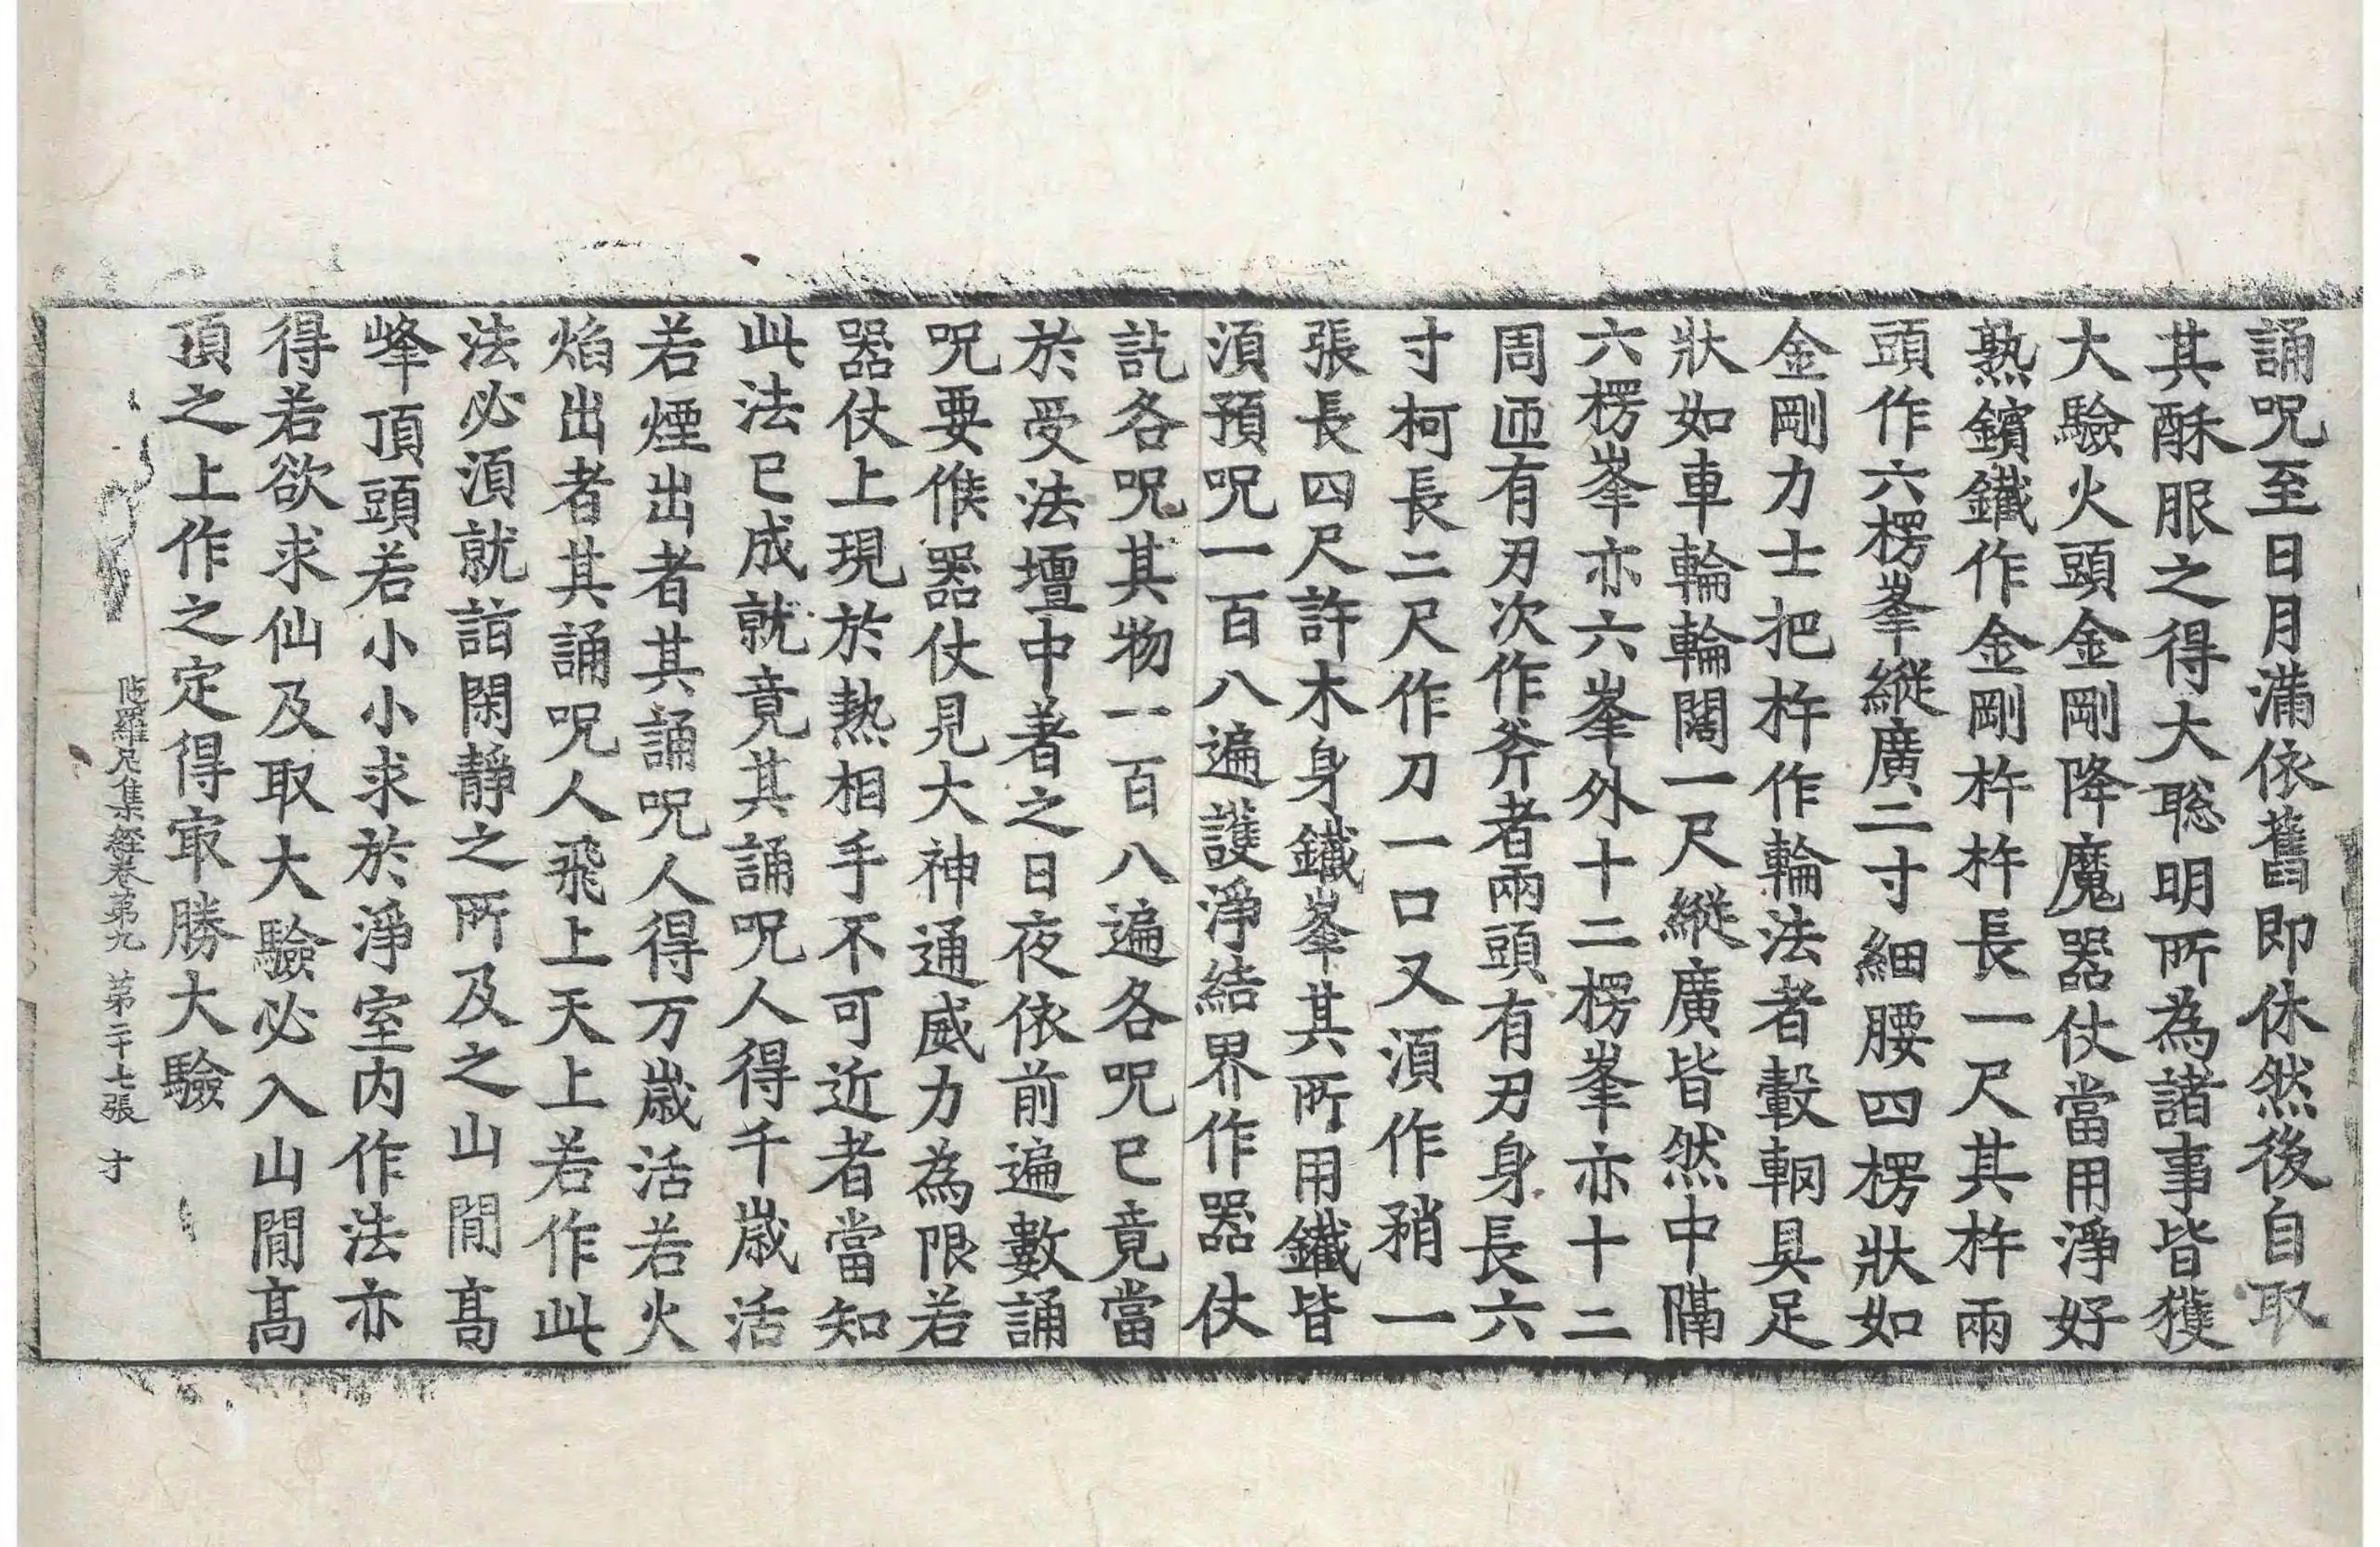 誦呪至日月滿依舊即休然後自取
其酥服之得大聡明所為諸事皆獲
大驗火頭金剛降魔器仗當用淨好
熟鑌鐵作金剛杵杵長一尺其杵兩
頭作六楞峯縱廣二寸細腰四楞狀如
金剛力士把杵作輪法者轂輞具足
狀如車輪輪闊一尺縱廣皆然中隔
六楞峯亦六峯外十二楞峯亦十二
周迊有刃次作斧者兩頭有刃身長六
寸柯長二尺作刀一口又湏作矟一
張長四尺許木身鐵峯其所用鐵皆
湏預呪一百八遍護淨結界作器仗
訖各呪其物一百八遍各呪已竟當
於受法壇中著之日夜依前遍數誦
呪要候器仗見大神通威力為限若
器仗上現於熱相手不可近者當知
此法已成就竟其誦呪人得千歲活
若煙出者其誦呪人得万歲活若火
焰出者其誦呪人飛上天上若作此
法必湏就詣閑靜之所及之山間高
峰頂頭若小小求於淨室內作法亦
得若欲求仙及取大驗必入山間高
頂之上作之定得㝡勝大驗
陁羅尼集經卷第九 第二十七張 才